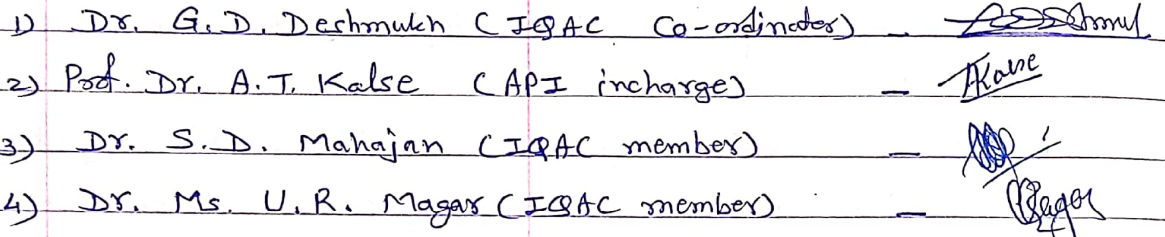 1) Dr. G. D. Deshmukh (IQAC Co-ordinator) -
2) Prof. Dr. A. T. Kalse (API incharge) - Kalse
3) Dr. S. D. Mahajan (IQAC member) -
4) Dr. Ms. U. R. Magar (IQAC member) -